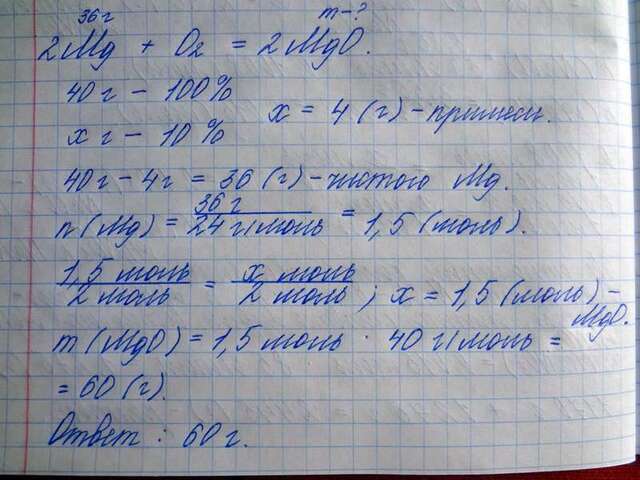 36г m-?
2Mg + O2 = 2MgO.
40г - 100%
xг - 10%
x = 4 (г) - примеси.
40г - 4г = 36 (г) - чистого Mg.
n(Mg) = 36г / 24 г/моль = 1,5 (моль).
1,5 моль / 2 моль = x моль / 2 моль ; x = 1,5 (моль) - MgO.
m(MgO) = 1,5 моль · 40 г/моль =
= 60 (г).
Ответ : 60 г.